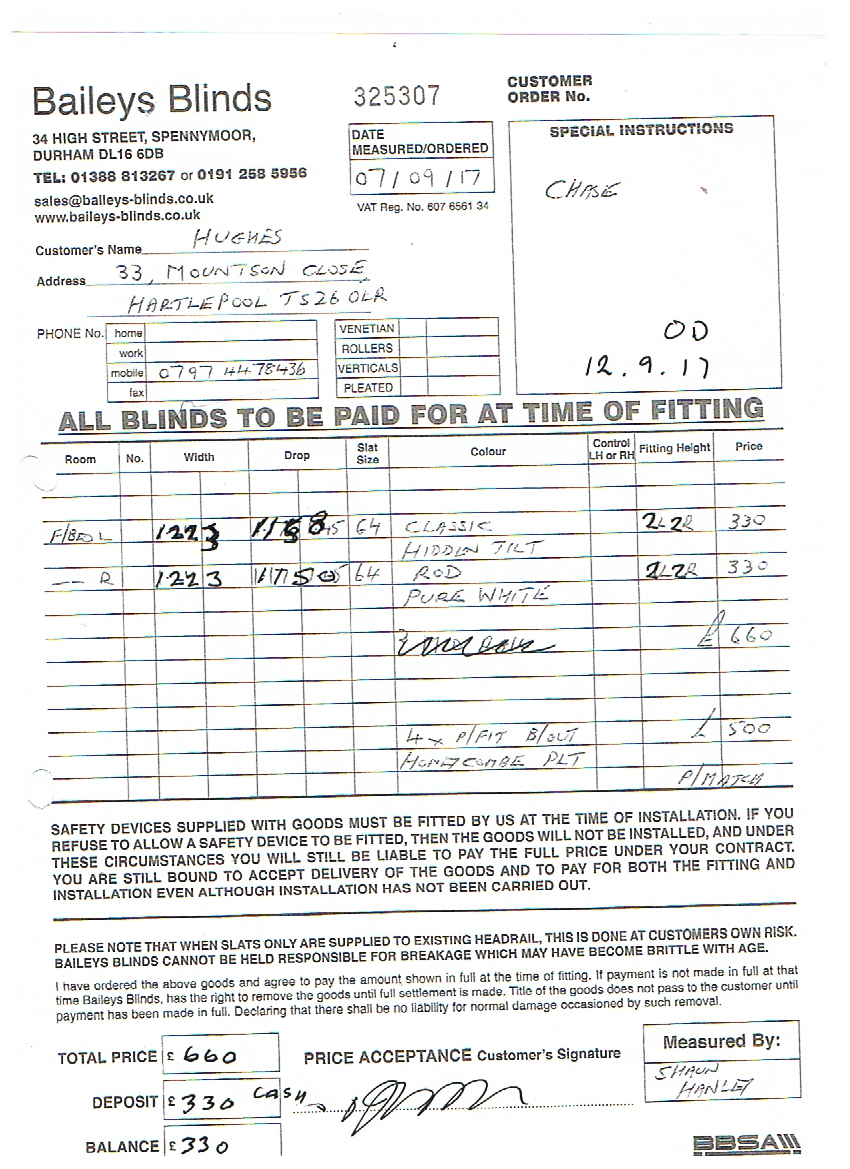 Baileys Blinds
325307
CUSTOMER
ORDER No.
34 HIGH STREET, SPENNYMOOR,
DURHAM DL16 6DB
TEL: 01388 813267 or 0191 258 5956
sales@baileys-blinds.co.uk
www.baileys-blinds.co.uk
DATE
MEASURED/ORDERED
07/09/17
VAT Reg. No. 607 6561 34
SPECIAL INSTRUCTIONS
CHASE
OD
12.9.17
Customer's Name HUGHES
Address 33, MOUNTSON CLOSE,
HARTLEPOOL TS26 0LR
PHONE No. home
work
mobile 0797 4478436
fax
VENETIAN
ROLLERS
VERTICALS
PLEATED
ALL BLINDS TO BE PAID FOR AT TIME OF FITTING
Room No. Width Drop Slat Size Colour Control LH or RH Fitting Height Price
F/BED L 64 CLASSIC 2L2R 330
HIDDEN TILT
-- R 1223 64 ROD 2L2R 330
PURE WHITE
£ 660
4x P/FIT B/OUT £ 500
HONEYCOMBE PLT
P/MATCH
SAFETY DEVICES SUPPLIED WITH GOODS MUST BE FITTED BY US AT THE TIME OF INSTALLATION. IF YOU
REFUSE TO ALLOW A SAFETY DEVICE TO BE FITTED, THEN THE GOODS WILL NOT BE INSTALLED, AND UNDER
THESE CIRCUMSTANCES YOU WILL STILL BE LIABLE TO PAY THE FULL PRICE UNDER YOUR CONTRACT.
YOU ARE STILL BOUND TO ACCEPT DELIVERY OF THE GOODS AND TO PAY FOR BOTH THE FITTING AND
INSTALLATION EVEN ALTHOUGH INSTALLATION HAS NOT BEEN CARRIED OUT.
PLEASE NOTE THAT WHEN SLATS ONLY ARE SUPPLIED TO EXISTING HEADRAIL, THIS IS DONE AT CUSTOMERS OWN RISK.
BAILEYS BLINDS CANNOT BE HELD RESPONSIBLE FOR BREAKAGE WHICH MAY HAVE BECOME BRITTLE WITH AGE.
I have ordered the above goods and agree to pay the amount shown in full at the time of fitting. If payment is not made in full at that
time Baileys Blinds, has the right to remove the goods until full settlement is made. Title of the goods does not pass to the customer until
payment has been made in full. Declaring that there shall be no liability for normal damage occasioned by such removal.
TOTAL PRICE £ 660
PRICE ACCEPTANCE Customer's Signature
Measured By:
SHAUN
HANLEY
DEPOSIT £ 330 CASH
BALANCE £ 330
BBSA